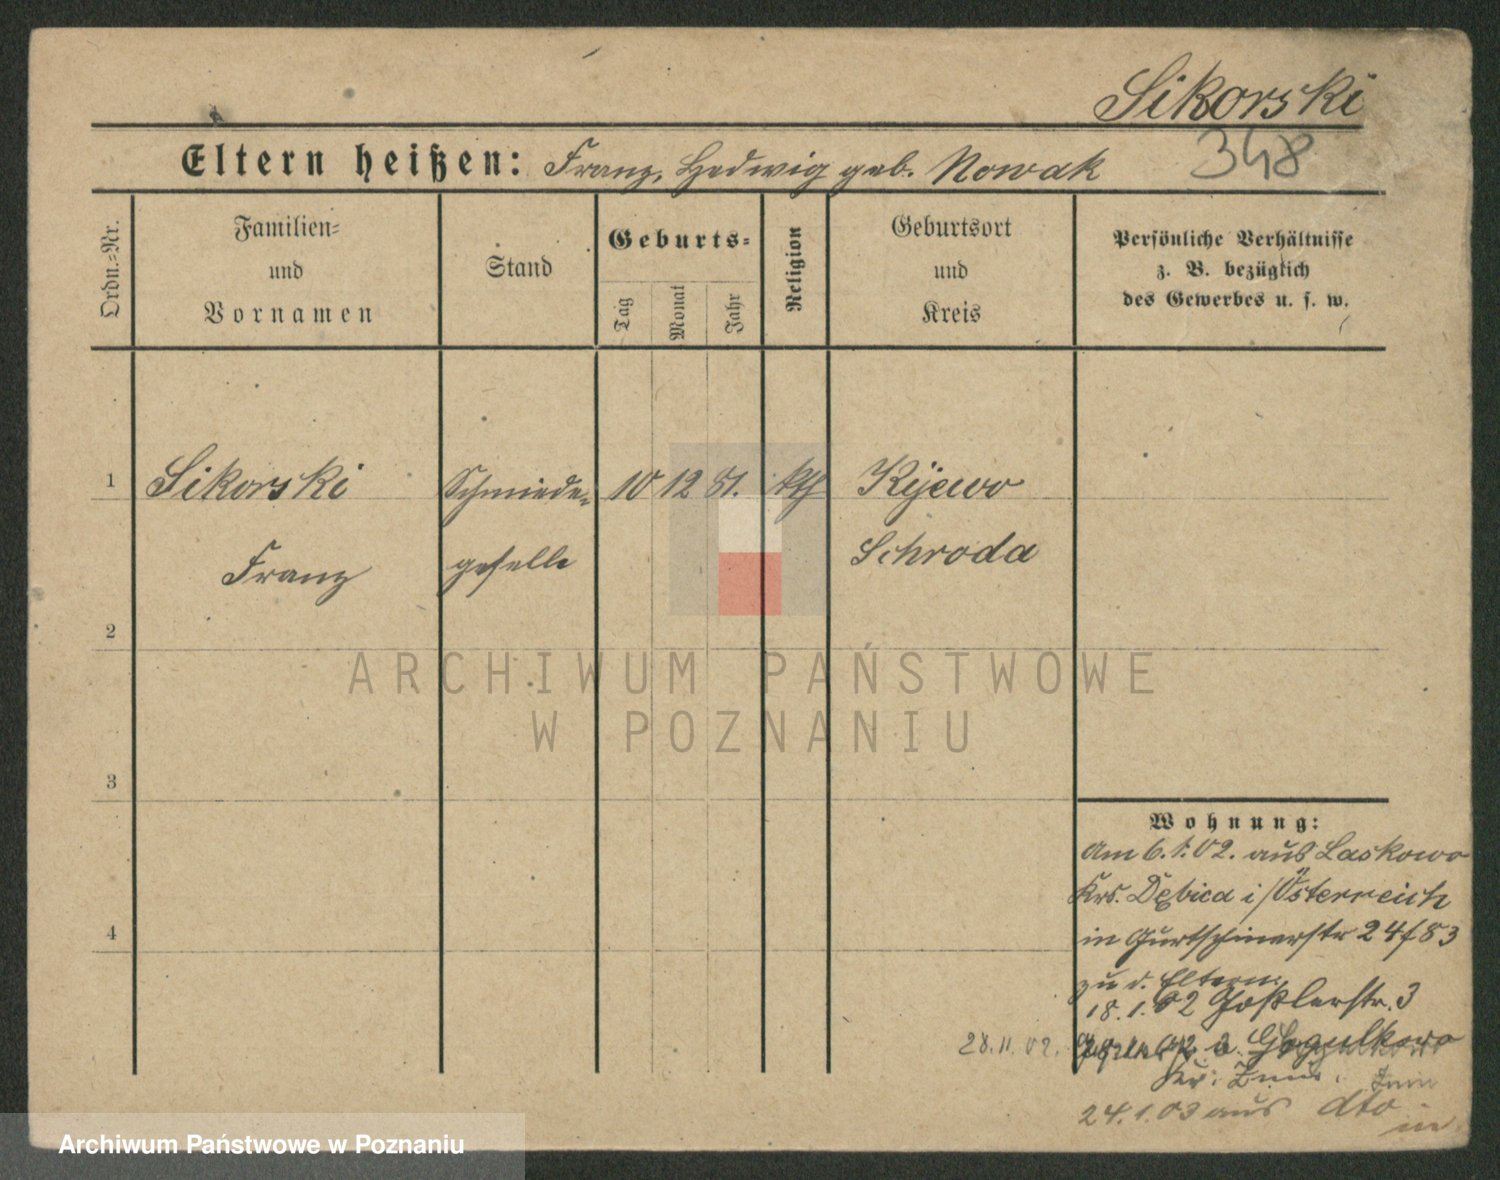 Sikorski
348
Eltern heißen: Franz, Hedwig geb. Nowak
Ordn.=Nr.
Familien=
und
Vornamen
Stand
Geburts=
Tag
Monat
Jahr
Religion
Geburtsort
und
Kreis
Persönliche Verhältnisse
z. B. bezüglich
des Gewerbes u. s. w.
1 Sikorski Schmiede= 10 12 81. kth Kijewo
Franz geselle Schroda
2
3
4
ARCHIWUM PAŃSTWOWE
W POZNANIU
Wohnung:
Am 6.1.02. aus Laskowo
Krs. Dębica i/Österreich
in Gurtschinerstr 24/83
zu d. Eltern.
18.1.02 Goßlerstr. 3
28.11.02. Gogulkowo
Kr. Znin.
24.1.03 aus dto
in
Archiwum Państwowe w Poznaniu